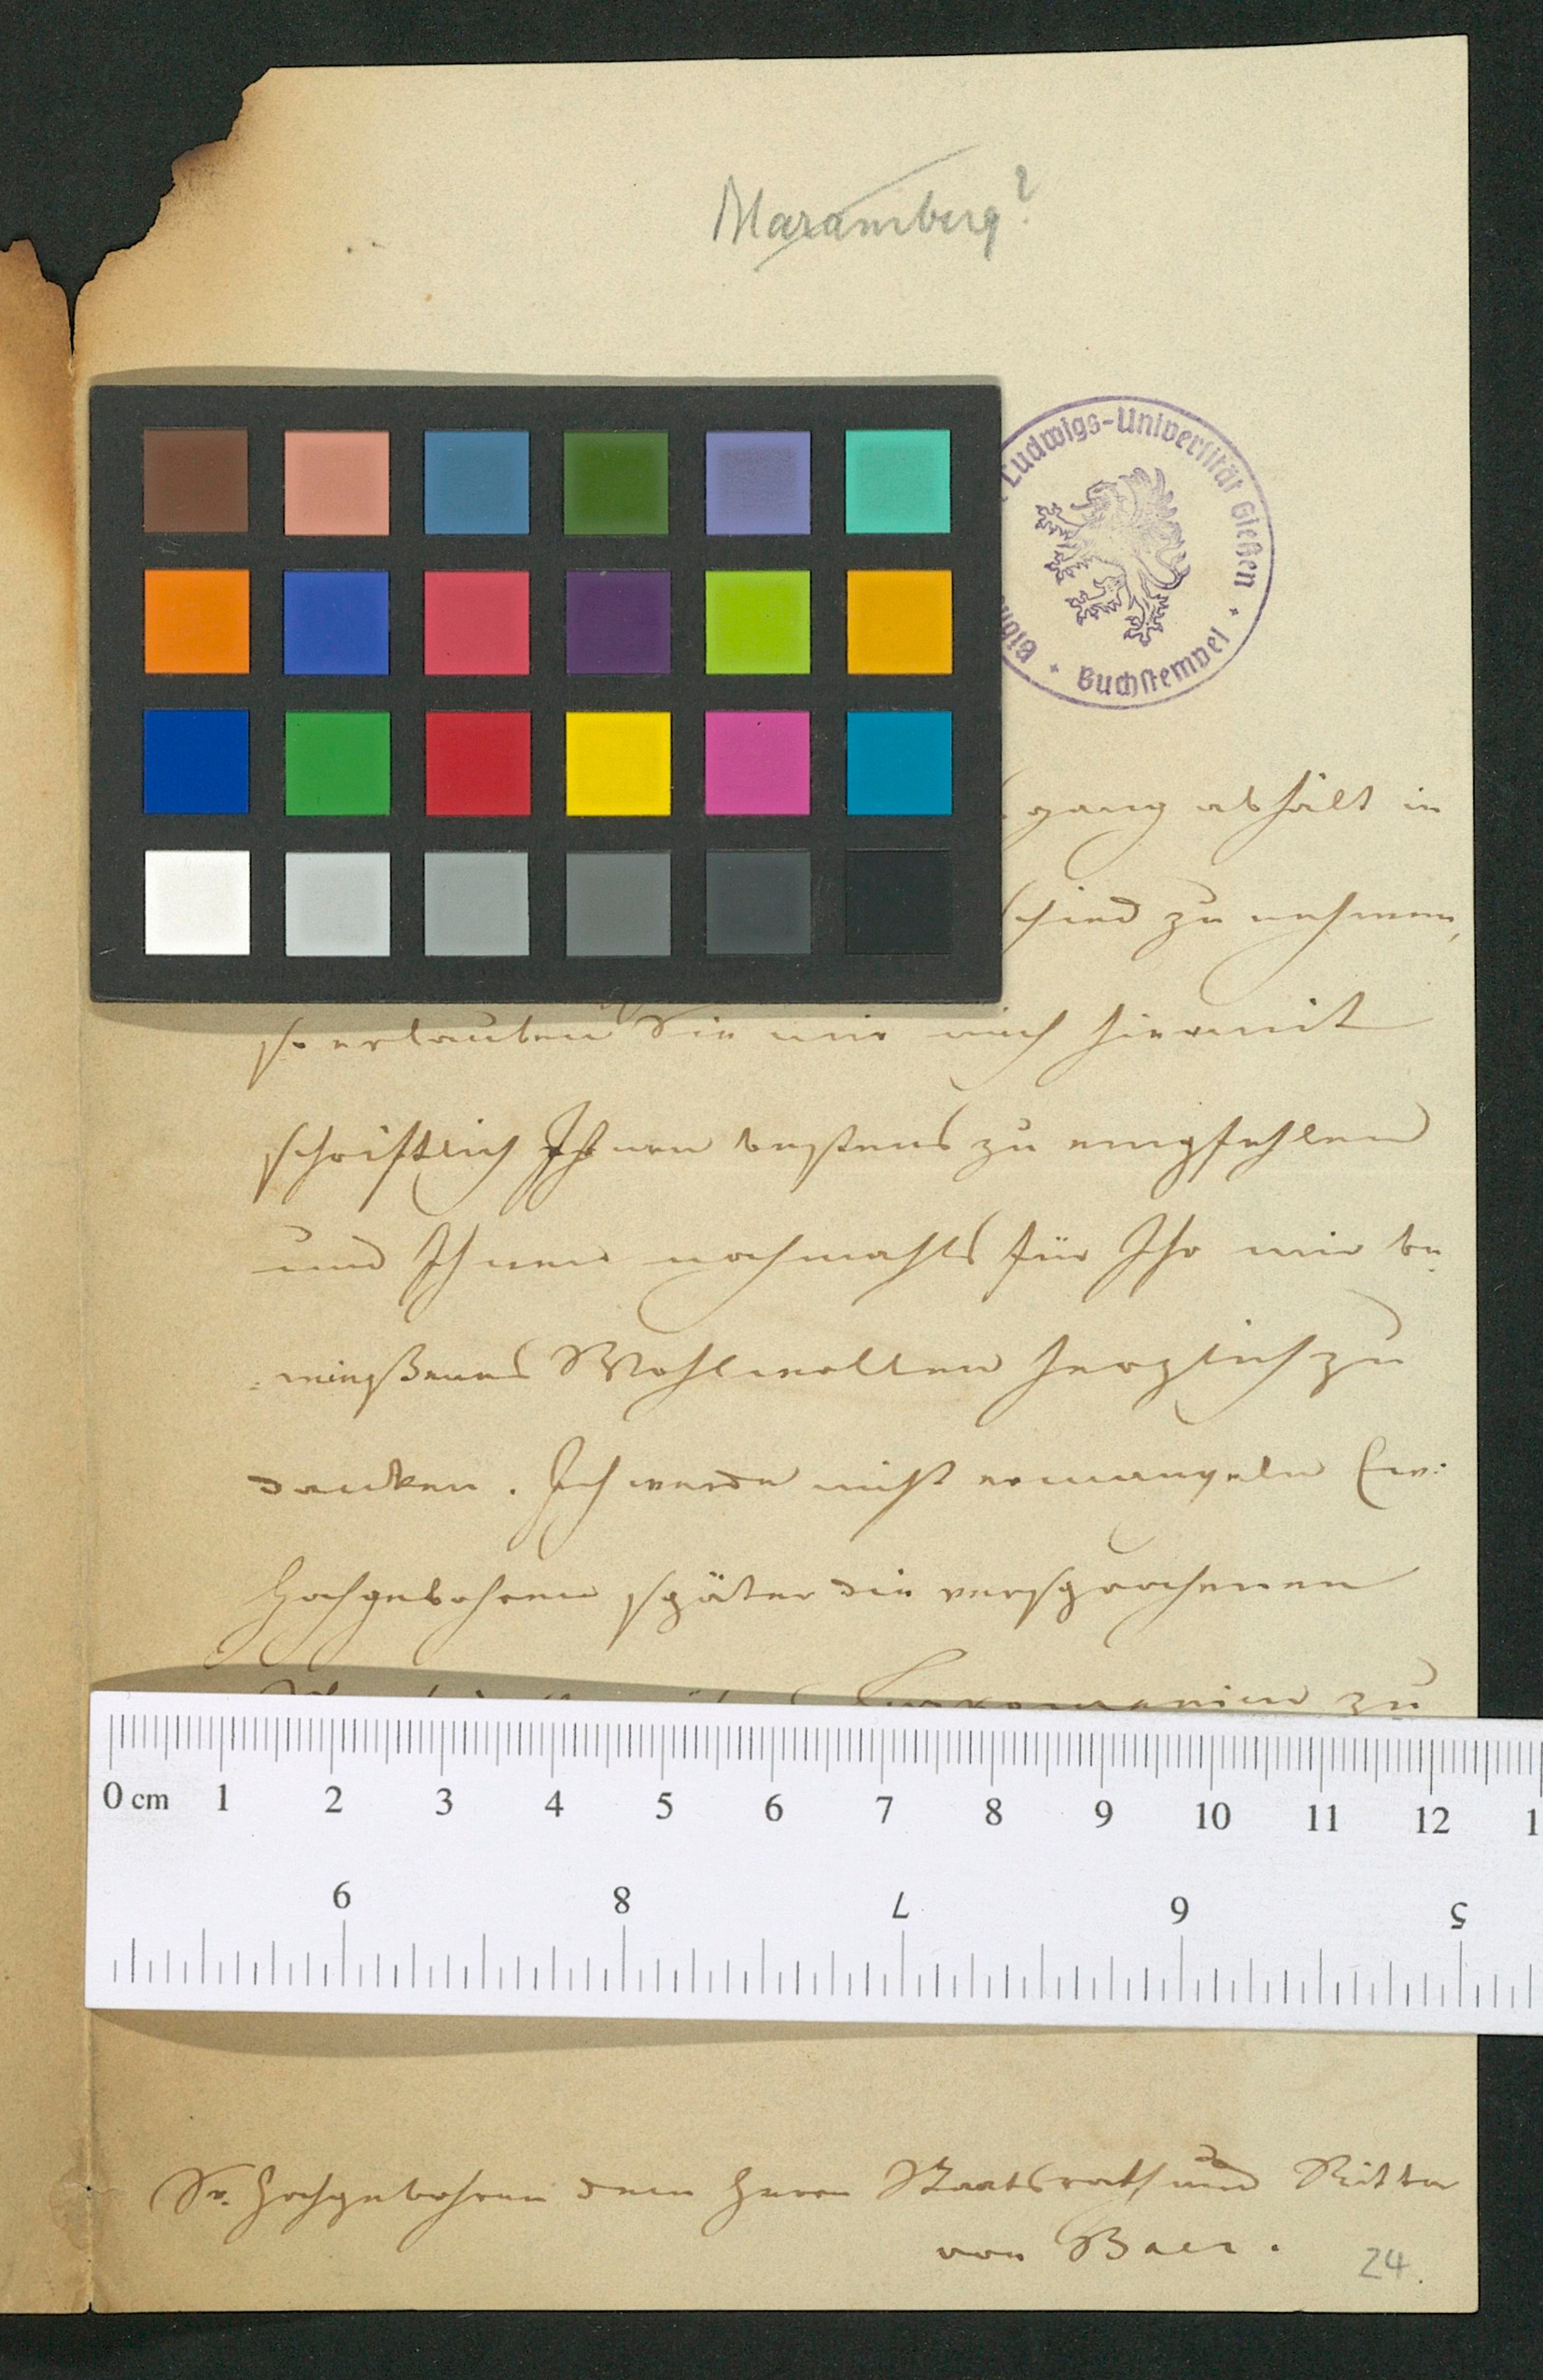 Maramberg?
Ludwigs-Universität Gießen
Buchstempel
gang abhält in
schied zu nehmen,
so erlauben Sie mir mich hiermit
schriftlich Ihnen bestens zu empfehlen
und Ihnen nochmahls für Ihr mir be
Wohlwollen herzlich zu
danken. Ich werde nicht ermangeln Ew:
Hochgebohren später die versprochenen
Turkomanien zu
0 cm 1 2 3 4 5 6 7 8 9 10 11 12 1
9 8 7 6 5
Sr. Hochgebohren dem Herrn Staatsrath und Ritter
von Baer.
24.